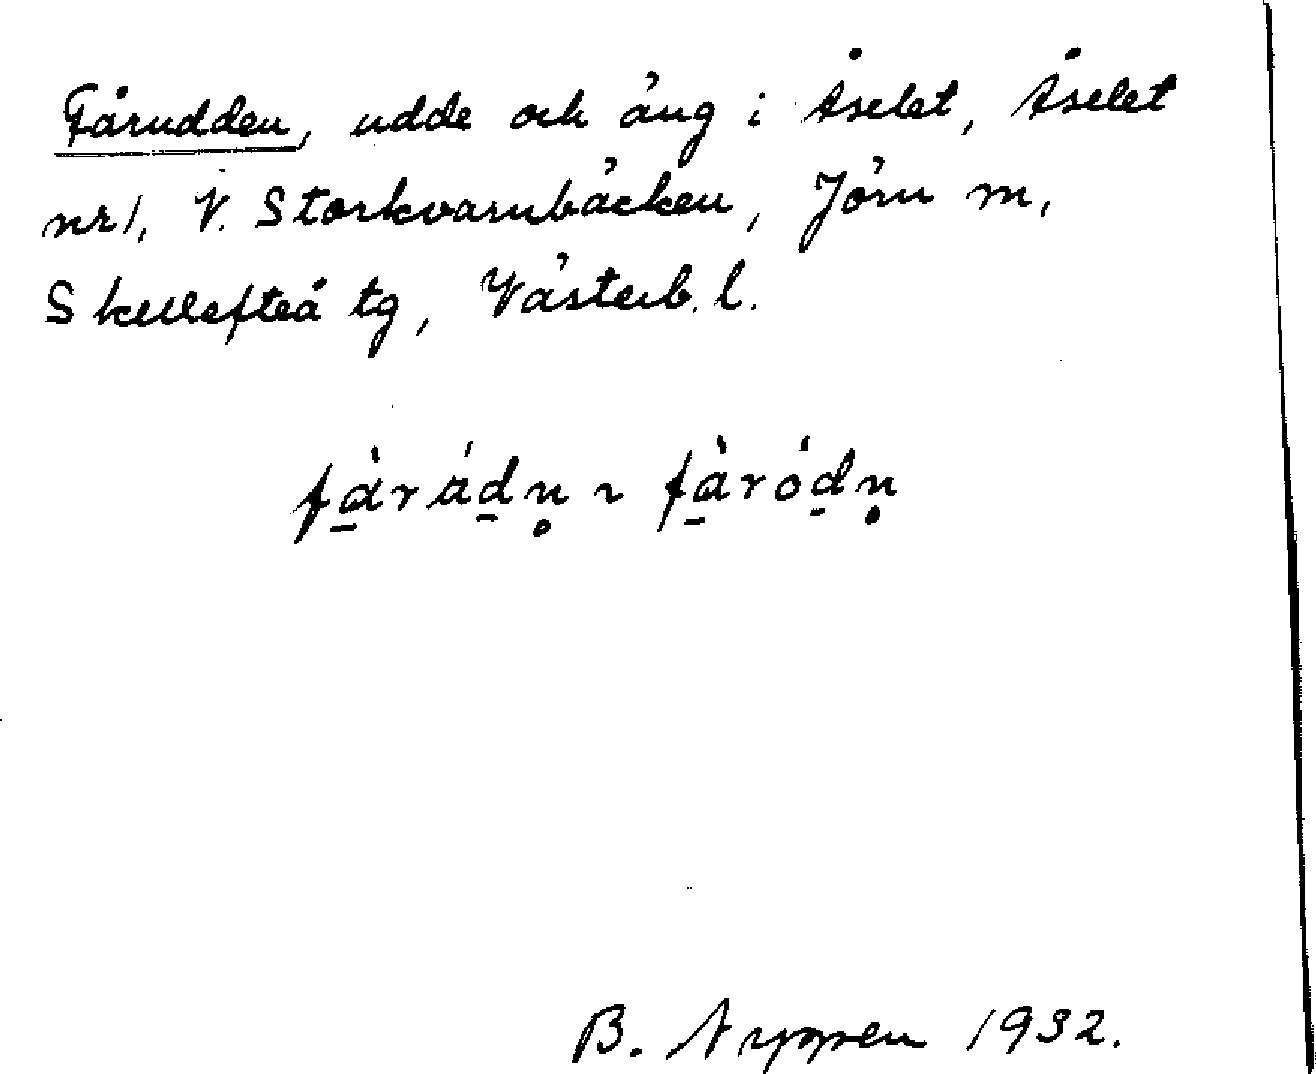 Fårudden, udde och äng i Åselet, Åselet
nr 1, V. Storkvarnbäcken, Jörn m,
Skellefteå tg, Västerb. l.
fàráḏṇ ~ fàróḏṇ
B. Nyppen 1932.